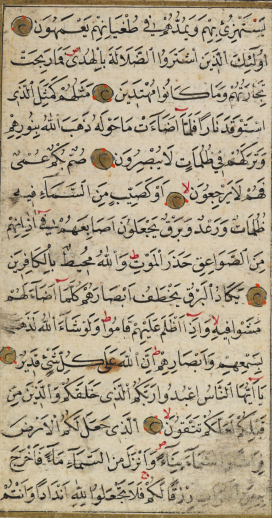 يستهزئ بهم ويمدهم في طغيانهم يعمهون
اولئك الذين اشتروا الضلالة بالهدى فما ربحت
تجارتهم وما كانوا مهتدين مثلهم كمثل الذي
استوقد نارا فلما اضاءت ما حوله ذهب الله بنورهم
وتركهم في ظلمات لا يبصرون صم بكم عمي
فهم لا يرجعون او كصيب من السماء فيه
ظلمات ورعد وبرق يجعلون اصابعهم في اذانهم
من الصواعق حذر الموت والله محيط بالكافرين
يكاد البرق يخطف ابصارهم كلما اضاء لهم
مشوا فيه واذا اظلم عليهم قاموا ولو شاء الله لذهب
بسمعهم وابصارهم ان الله على كل شيء قدير
يا ايها الناس اعبدوا ربكم الذي خلقكم والذين من
قبلكم لعلكم تتقون الذي جعل لكم الارض
والسماء بناء وانزل من السماء ماء فاخرج
رزقا لكم فلا تجعلوا لله اندادا وانتم